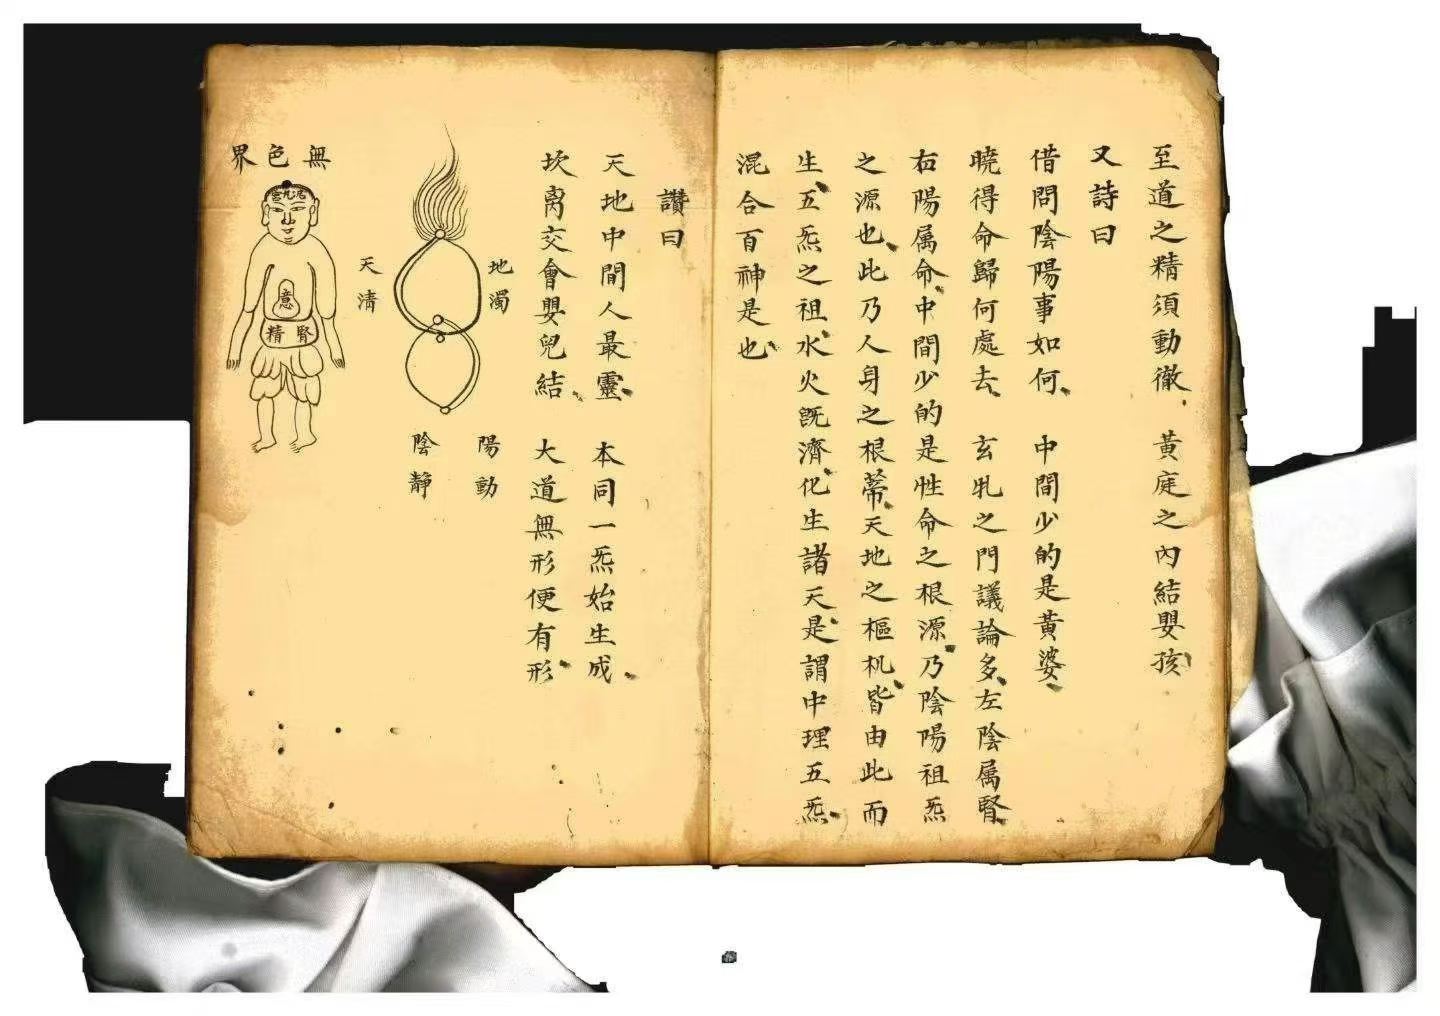 至道之精須動徹 黃庭之內結嬰孩
又詩曰
借問陰陽事如何 中間少的是黃婆
曉得命歸何處去 玄牝之門議論多左陰属腎
右陽属命中間少的是性命之根源乃陰陽祖炁
之源也此乃人身之根蒂天地之樞机皆由此而
生五炁之祖水火既濟化生諸天是謂中理五炁
混合百神是也
讚曰
天地中間人最靈 本同一炁始生成
坎离交會嬰兒結 大道無形便有形
地濁
天清
陽動
陰靜
無色界
泥丸宮
意
腎精